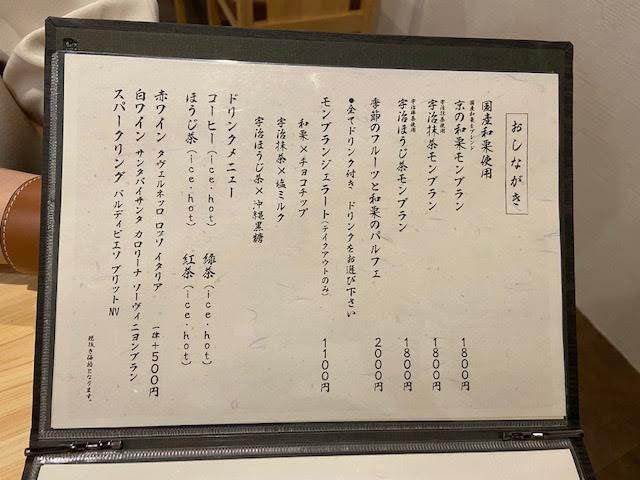 おしながき
国産和栗使用
国産和栗をブレンド
京の和栗モンブラン 1800円
宇治抹茶使用
宇治抹茶モンブラン 1800円
宇治抹茶使用
宇治ほうじ茶モンブラン 1800円
季節のフルーツと和栗のパルフェ 2000円
●全てドリンク付き ドリンクをお選び下さい
モンブランジェラート(テイクアウトのみ) 1100円
和栗×チョコチップ
宇治抹茶×塩ミルク
宇治ほうじ茶×沖縄黒糖
ドリンクメニュー
コーヒー(ice・hot) 緑茶(ice・hot)
ほうじ茶(ice・hot) 紅茶(ice・hot)
赤ワイン タヴェルネッロ ロッソ イタリア 一律+500円
白ワイン サンタバイサンタ カロリーナ ソーヴィニヨンブラン
スパークリング バルディビエソ ブリット NV
税抜き価格となります。